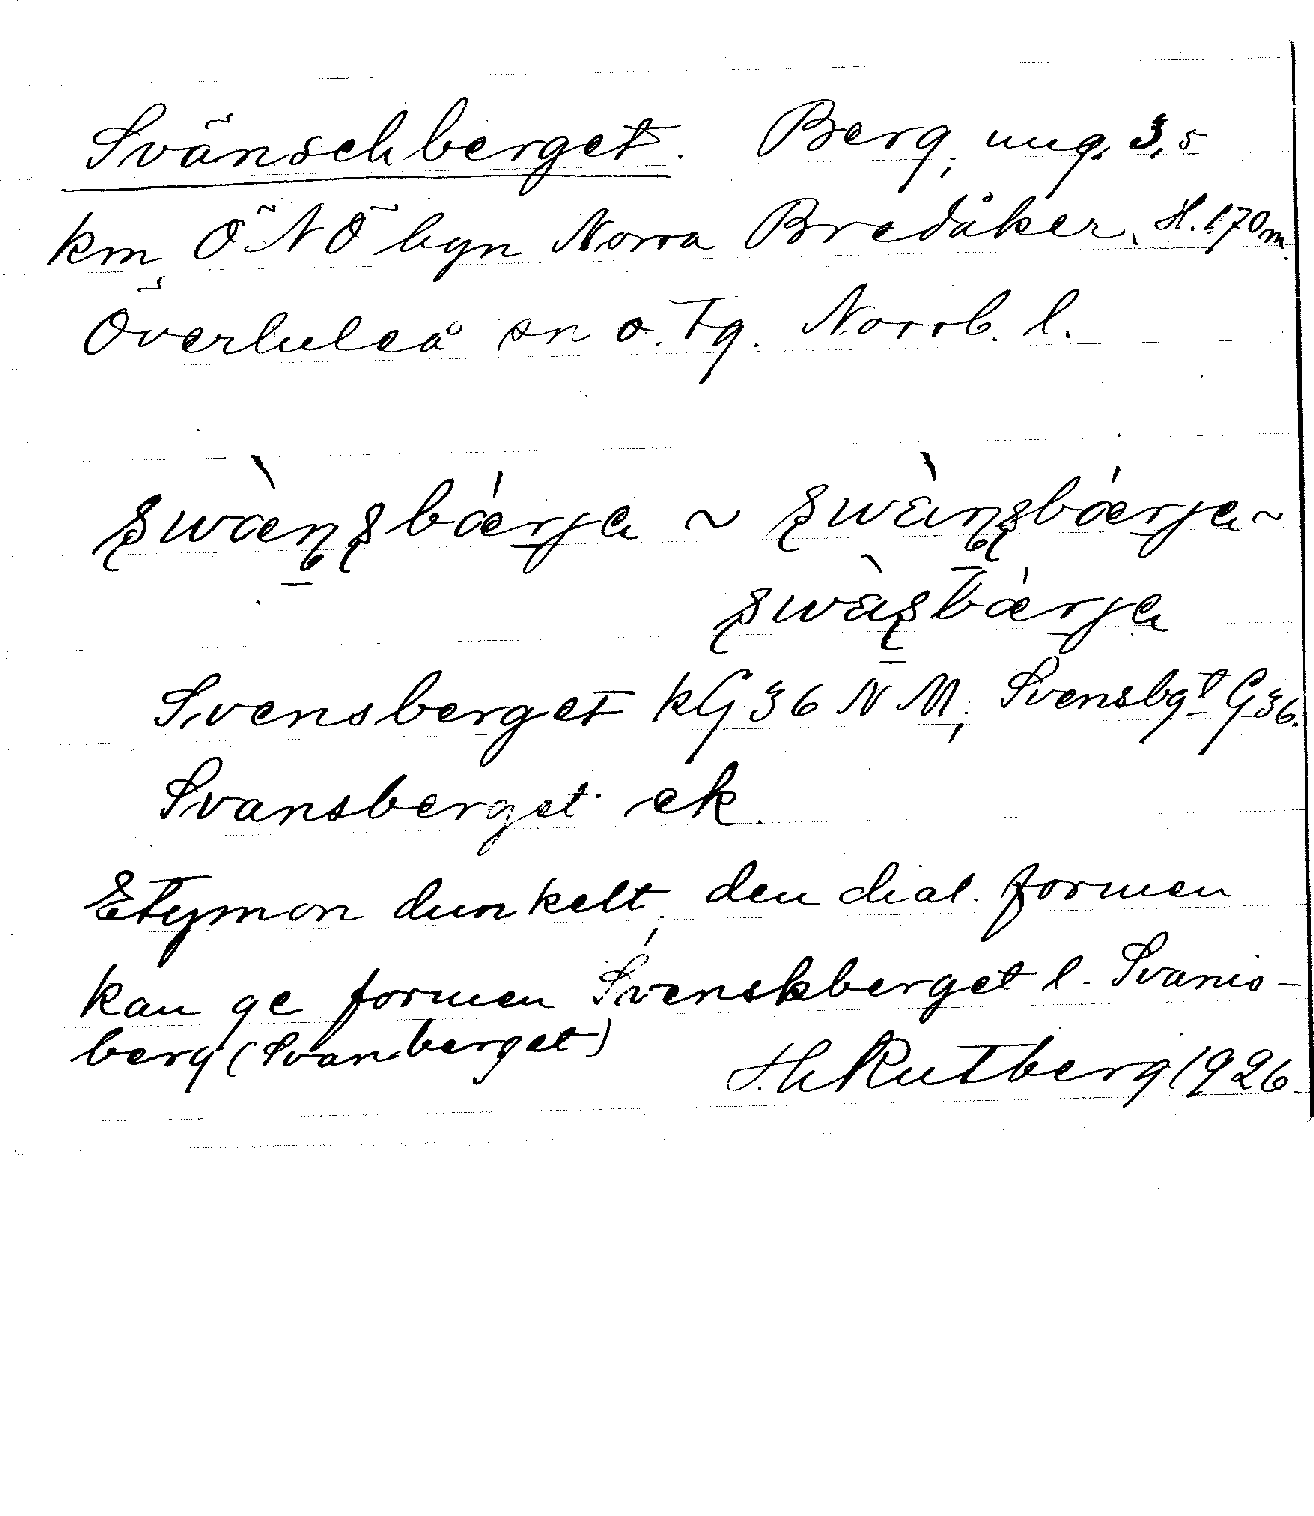 Svänschberget. Berg, ung. 3,5
km ÖNÖ byn Norra Bredåker. H. 170 m.
Överluleå sn o. Tg. Norrb. l.
Svensberget kG 36 NM, Svensbgt G 36.
Svansberget ek.
Etymon dunkelt, den dial. formen
kan ge formen Svenskberget l. Svanis-
berg (Svanberget)
H. Rutberg 1926